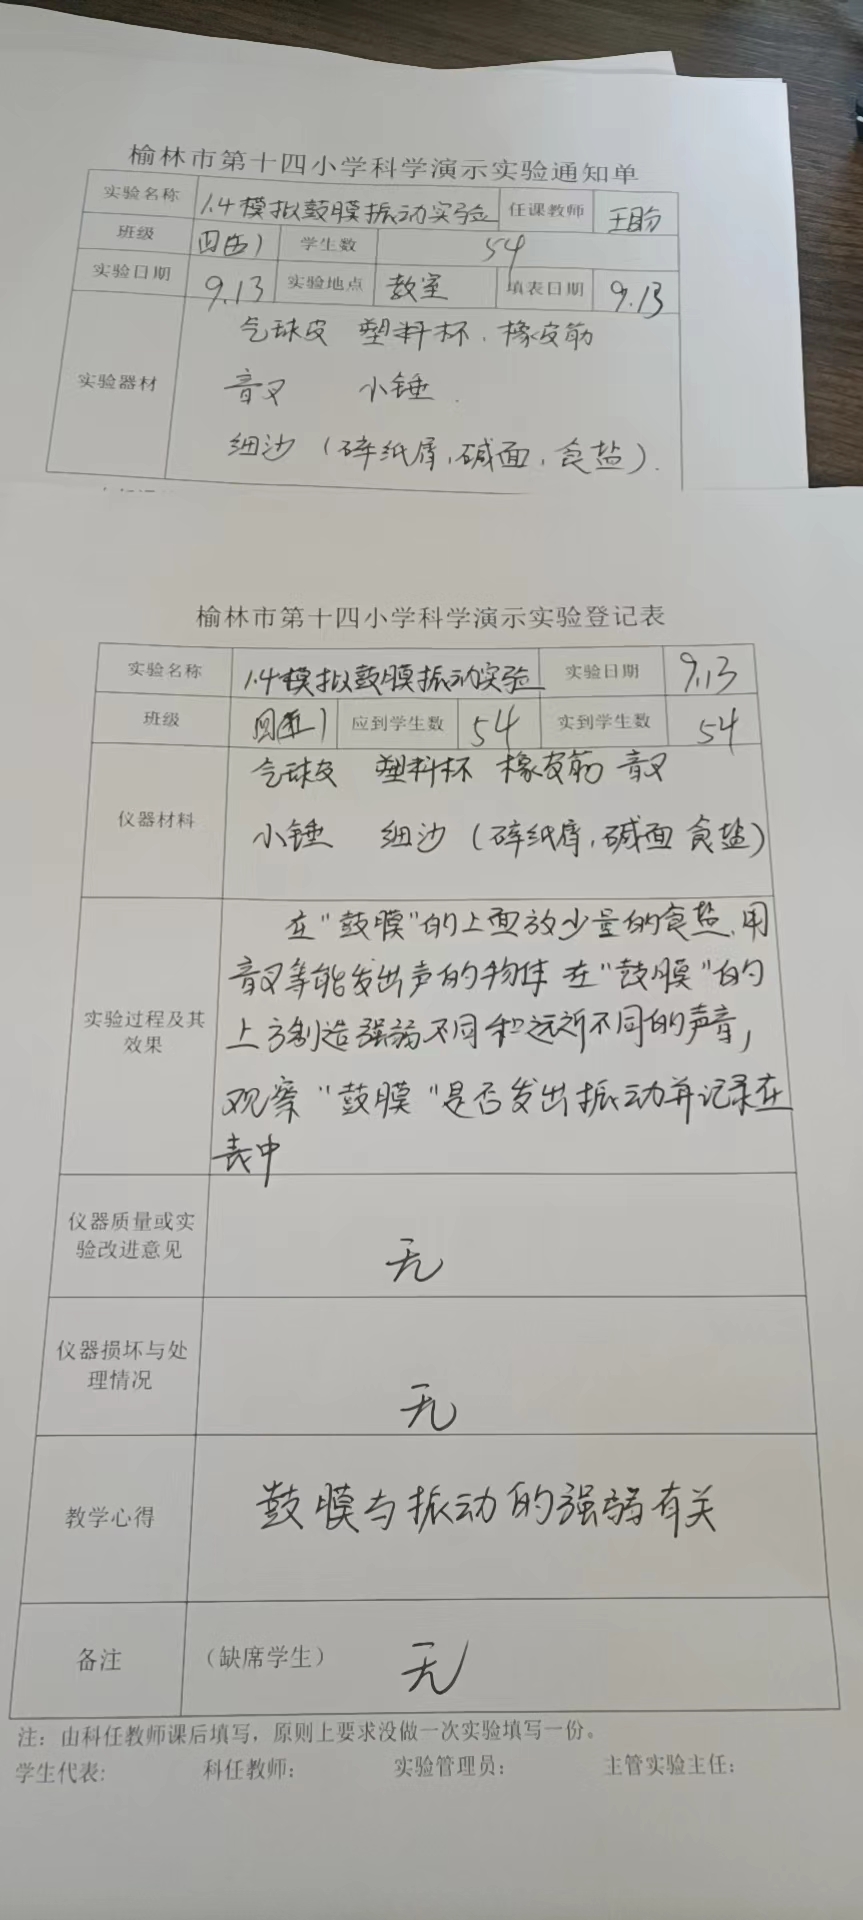 榆林市第十四小学科学演示实验通知单
实验名称 1.4模拟鼓膜振动实验 任课教师
班级 四(五) 学生数 54
实验日期 9.13 实验地点 教室 填表日期 9.13
气球皮 塑料杯、橡皮筋
实验器材 音叉 小锤
细沙(碎纸屑,碱面,食盐).
榆林市第十四小学科学演示实验登记表
实验名称 1.4模拟鼓膜振动实验 实验日期 9.13
班级 四(五) 应到学生数 54 实到学生数 54
气球皮 塑料杯 橡皮筋 音叉
仪器材料
小锤 细沙(碎纸屑,碱面 食盐)
在"鼓膜"的上面放少量的食盐,用
音叉等能发出声的物体 在"鼓膜"的
实验过程及其
效果
上方制造强弱不同和远近不同的声音,
观察"鼓膜"是否发出振动并记录在
表中
仪器质量或实
验改进意见
无
仪器损坏与处
理情况
无
教学心得 鼓膜与振动的强弱有关
备注 (缺席学生) 无
注:由科任教师课后填写,原则上要求没做一次实验填写一份。
学生代表: 科任教师: 实验管理员: 主管实验主任: